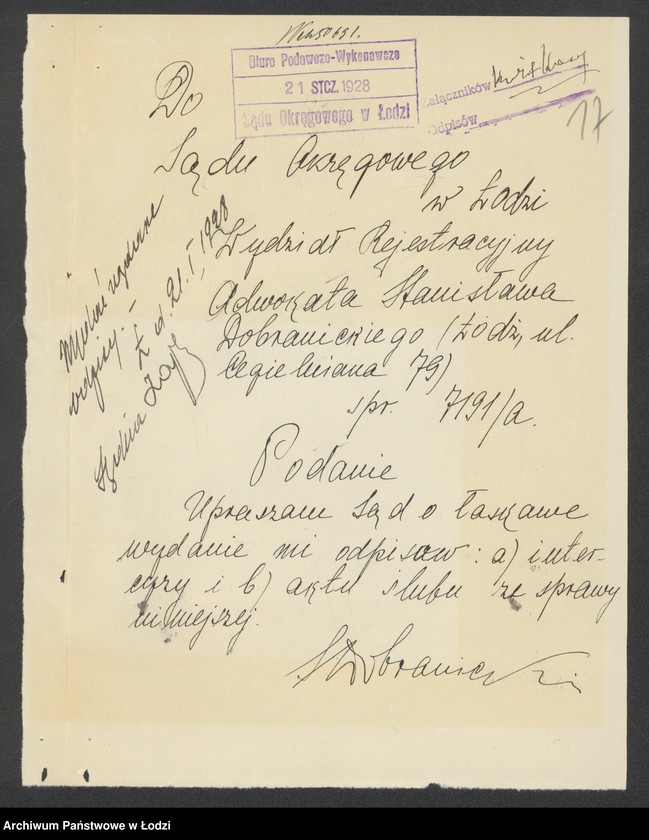 Biuro Podawczo-Wykonawcze
21 STCZ. 1928
Sądu Okręgowego w Łodzi
Załączników
Odpisów
17
Do
Sądu Okręgowego
w Łodzi
Wydział Rejestracyjny
Adwokata Stanisława
Dobranickiego (Łódź, ul.
Cegielniana 79)
spr. 7191/a.
Podanie
Upraszam Sąd o łaskawe
wydanie mi odpisów: a) inter-
cyzy i b) aktu ślubu ze sprawy
niniejszej.
SDobranicki
odpisy. –
Ł. d. 21. I. 1928
Archiwum Państwowe w Łodzi